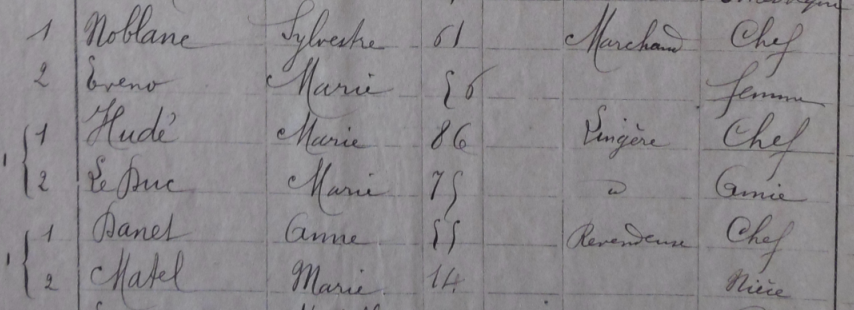 1 Noblanc Sylvestre 61 Marchand Chef
2 Eveno Marie 56 femme
1 Hudé Marie 86 Lingère Chef
2 Le Duc Marie 75 d Amie
1 Danet Anne 55 Revendeuse Chef
2 Matel Marie 14 Nièce